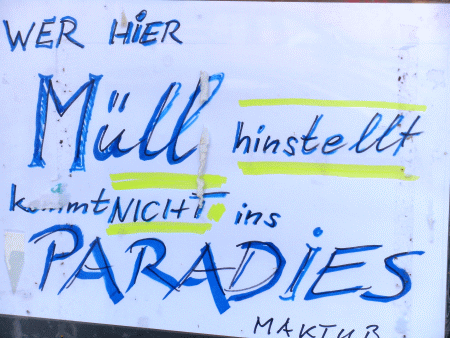 WER HiER
Müll hinstellt
kommt NICHT ins
PARADiES
MAKTUB